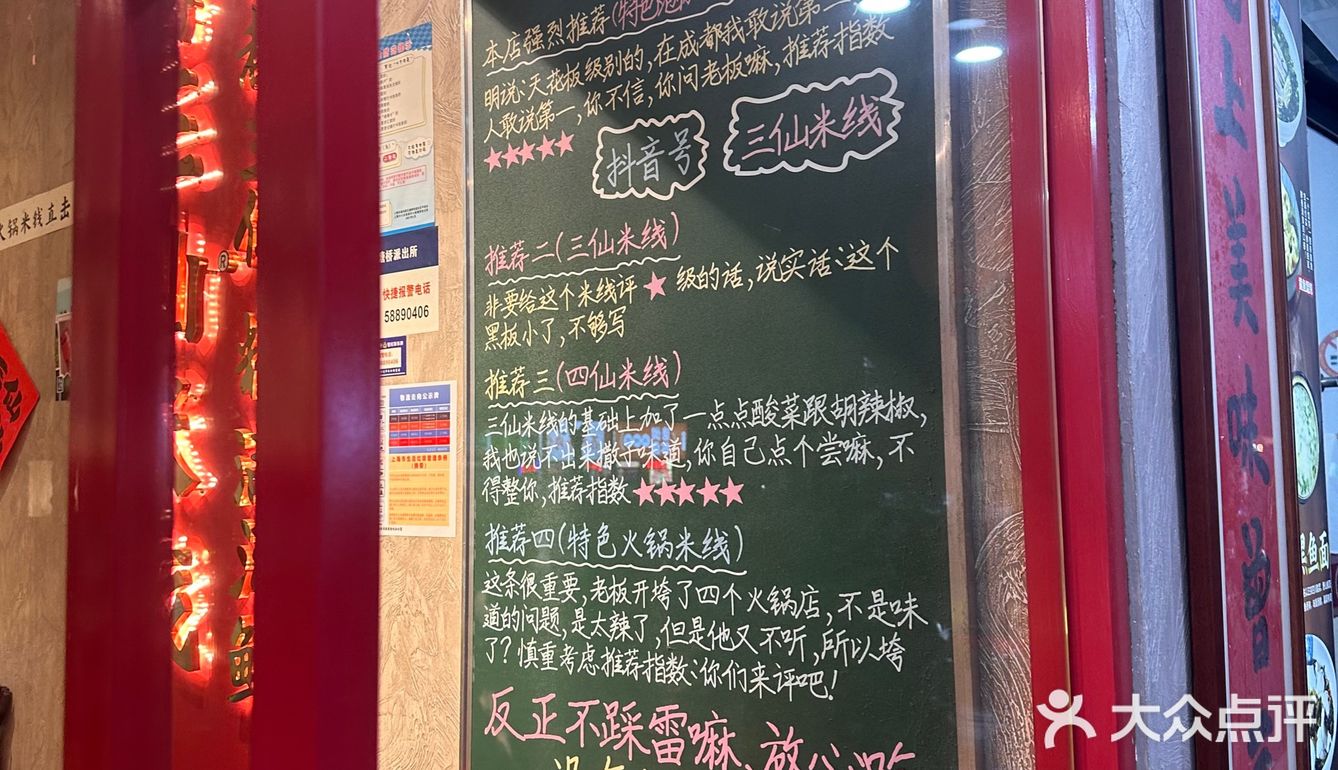 本店强烈推荐(特色
明说:天花板级别的,在成都我敢说第二
人敢说第一,你不信,你问老板嘛,推荐指数
★★★★★
抖音号
三仙米线
推荐二(三仙米线)
非要给这个米线评★级的话,说实话:这个
黑板小了,不够写
推荐三(四仙米线)
三仙米线的基础上加了一点点酸菜跟胡辣椒,
我也说不出来撒子味道,你自己点个尝嘛,不
得整你,推荐指数★★★★★
推荐四(特色火锅米线)
这条很重要,老板开垮了四个火锅店,不是味
道的问题,是太辣了,但是他又不听,所以垮
了?慎重考虑推荐指数:你们来评吧!
反正不踩雷嘛,放心吃
火锅米线直击
®
桥派出所
快捷报警电话
58890406
上美味
鱼面
大众点评